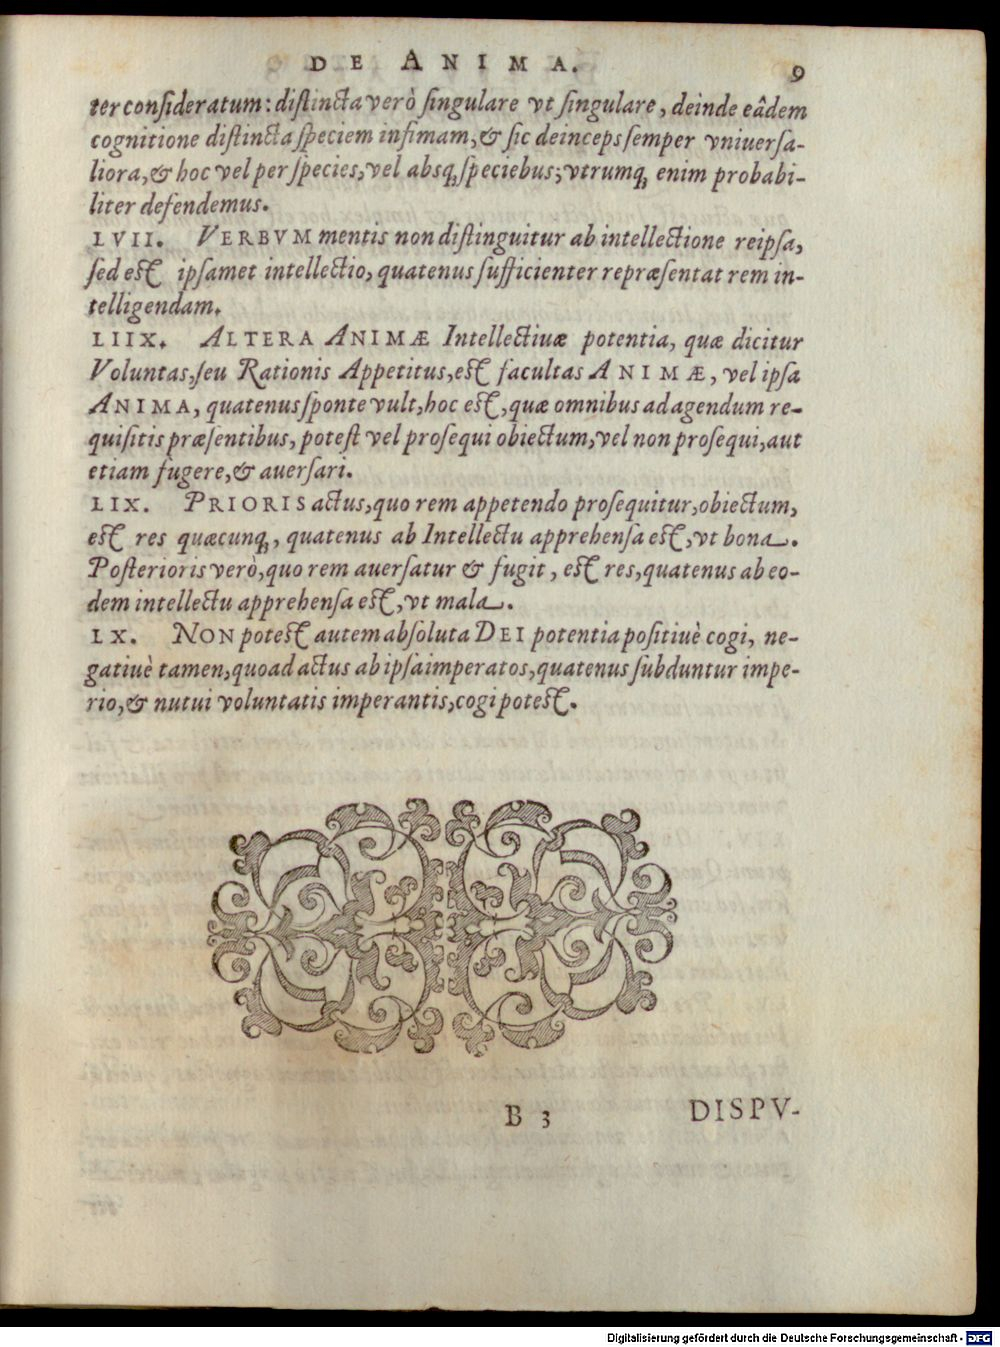 DE ANIMA. 9
ter consideratum: distincta verò singulare vt singulare, deinde eâdem
cognitione distincta speciem infimam, & sic deinceps semper vniuersa-
liora, & hoc vel per species, vel absq; speciebus; vtrumq; enim probabi-
liter defendemus.
LVII. VERBVM mentis non distinguitur ab intellectione reipsa,
sed est ipsamet intellectio, quatenus sufficienter repræsentat rem in-
telligendam.
LIIX. ALTERA ANIMÆ Intellectiuæ potentia, quæ dicitur
Voluntas, seu Rationis Appetitus, est facultas ANIMÆ, vel ipsa
ANIMA, quatenus sponte vult, hoc est, quæ omnibus ad agendum re-
quisitis præsentibus, potest vel prosequi obiectum, vel non prosequi, aut
etiam fugere, & auersari.
LIX. PRIORIS actus, quo rem appetendo prosequitur, obiectum,
est res quæcunq;, quatenus ab Intellectu apprehensa est, vt bona.
Posterioris verò, quo rem auersatur & fugit, est res, quatenus ab eo-
dem intellectu apprehensa est, vt mala.
LX. NON potest autem absoluta DEI potentia positiuè cogi, ne-
gatiuè tamen, quoad actus ab ipsa imperatos, quatenus subduntur impe-
rio, & nutui voluntatis imperantis, cogi potest.
B 3 DISPV-
Digitalisierung gefördert durch die Deutsche Forschungsgemeinschaft - DFG